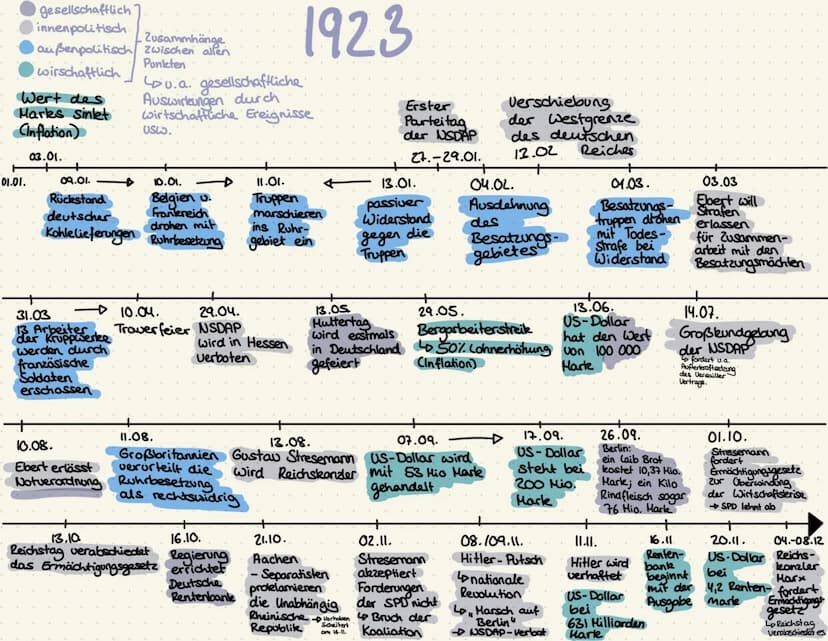 1923
gesellschaftlich
innenpolitisch
außenpolitisch
wirschaftlich
Zusammenhänge
zwischen allen
Punkten
↳ u.a. gesellschaftliche
Auswirkungen durch
wirtschaftliche Ereignisse
usw.
Wert des
Markes sinkt
(Inflation)
03.01.
Erster
Parteitag
der NSDAP
27.-29.01.
Verschiebung
der Westgrenze
des deutschen
Reiches
12.02
01.01.
09.01. →
Rückstand
deutscher
Kohlelieferungen
10.01. →
Belgien u.
Frankreich
drohen mit
Ruhrbesetzung
11.01.
Truppen
marschieren
ins Ruhr-
gebiet ein
← 13.01
passiver
Widerstand
gegen die
Truppen
04.02.
Ausdehnung
des
Besatzungs-
gebietes
01.03.
Besatzungs-
truppen drohen
mit Todes-
strafe bei
Widerstand
03.03
Ebert will
Strafen
erlassen
für Zusammen-
arbeit mit den
Besatzungsmächten
31.03 →
13 Arbeiter
der Kruppwerke
werden durch
französische
Soldaten
erschossen
10.04.
Trauerfeier
29.04.
NSDAP
wird in Hessen
verboten
13.05
Muttertag
wird erstmals
in Deutschland
gefeiert
29.05.
Bergarbeiterstreik
↳ 50% Lohnerhöhung
(Inflation)
13.06.
US-Dollar
hat den Wert
von 100 000
Mark
14.07.
Großkundgebung
der NSDAP
↳ fordert u.a.
Außerkraftsetzung
des Versailler
Vertrags.
10.08.
Ebert erlässt
Notverordnung
11.08.
Großbritannien
verurteilt die
Ruhrbesetzung
als rechtswidrig
13.08.
Gustav Stresemann
wird Reichskanzler
07.09. →
US-Dollar wird
mit 53 Mio Mark
gehandelt
17.09.
US-Dollar
steht bei
200 Mio.
Mark
26.09.
Berlin:
ein Laib Brot
kostet 10,37 Mio.
Mark; ein Kilo
Rindfleisch sogar
76 Mio. Mark
01.10.
Stresemann
fordert
Ermächtigungsgesetz
zur Überwindung
der Wirtschaftskrise
→ SPD lehnt ab
13.10.
Reichstag verabschiedet
das Ermächtigungsgesetz
16.10.
Regierung
errichtet
Deutsche
Rentenbank
21.10.
Aachen
- Separatisten
proklamieren
die Unabhängig
Rheinische
Republik
→ Vorhaben
scheitert
am 16.11.
02.11.
Stresemann
akzeptiert
Forderungen
der SPD nicht
↳ Bruch der
Koaliation
08./09.11.
Hitler-Putsch
↳ nationale
Revolution
↳ „Marsch auf
Berlin"
→ NSDAP-Verbot
11.11.
Hitler wird
verhaftet
US-Dollar
bei
631 Milliarden
Mark
16.11
Renten-
bank
beginnt
mit der
Ausgabe
20.11.
US-Dollar
bei
4,2 Renten-
mark
04.-08.12
Reichs-
kanzler
Marx
fordert
Ermächtigungs
gesetz
↳ Reichstag
verabschiedet es